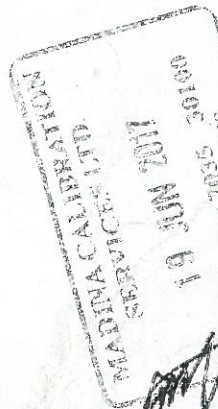 MADINA CALIBRATION
SERVICES LTD.
19 JUN 2017